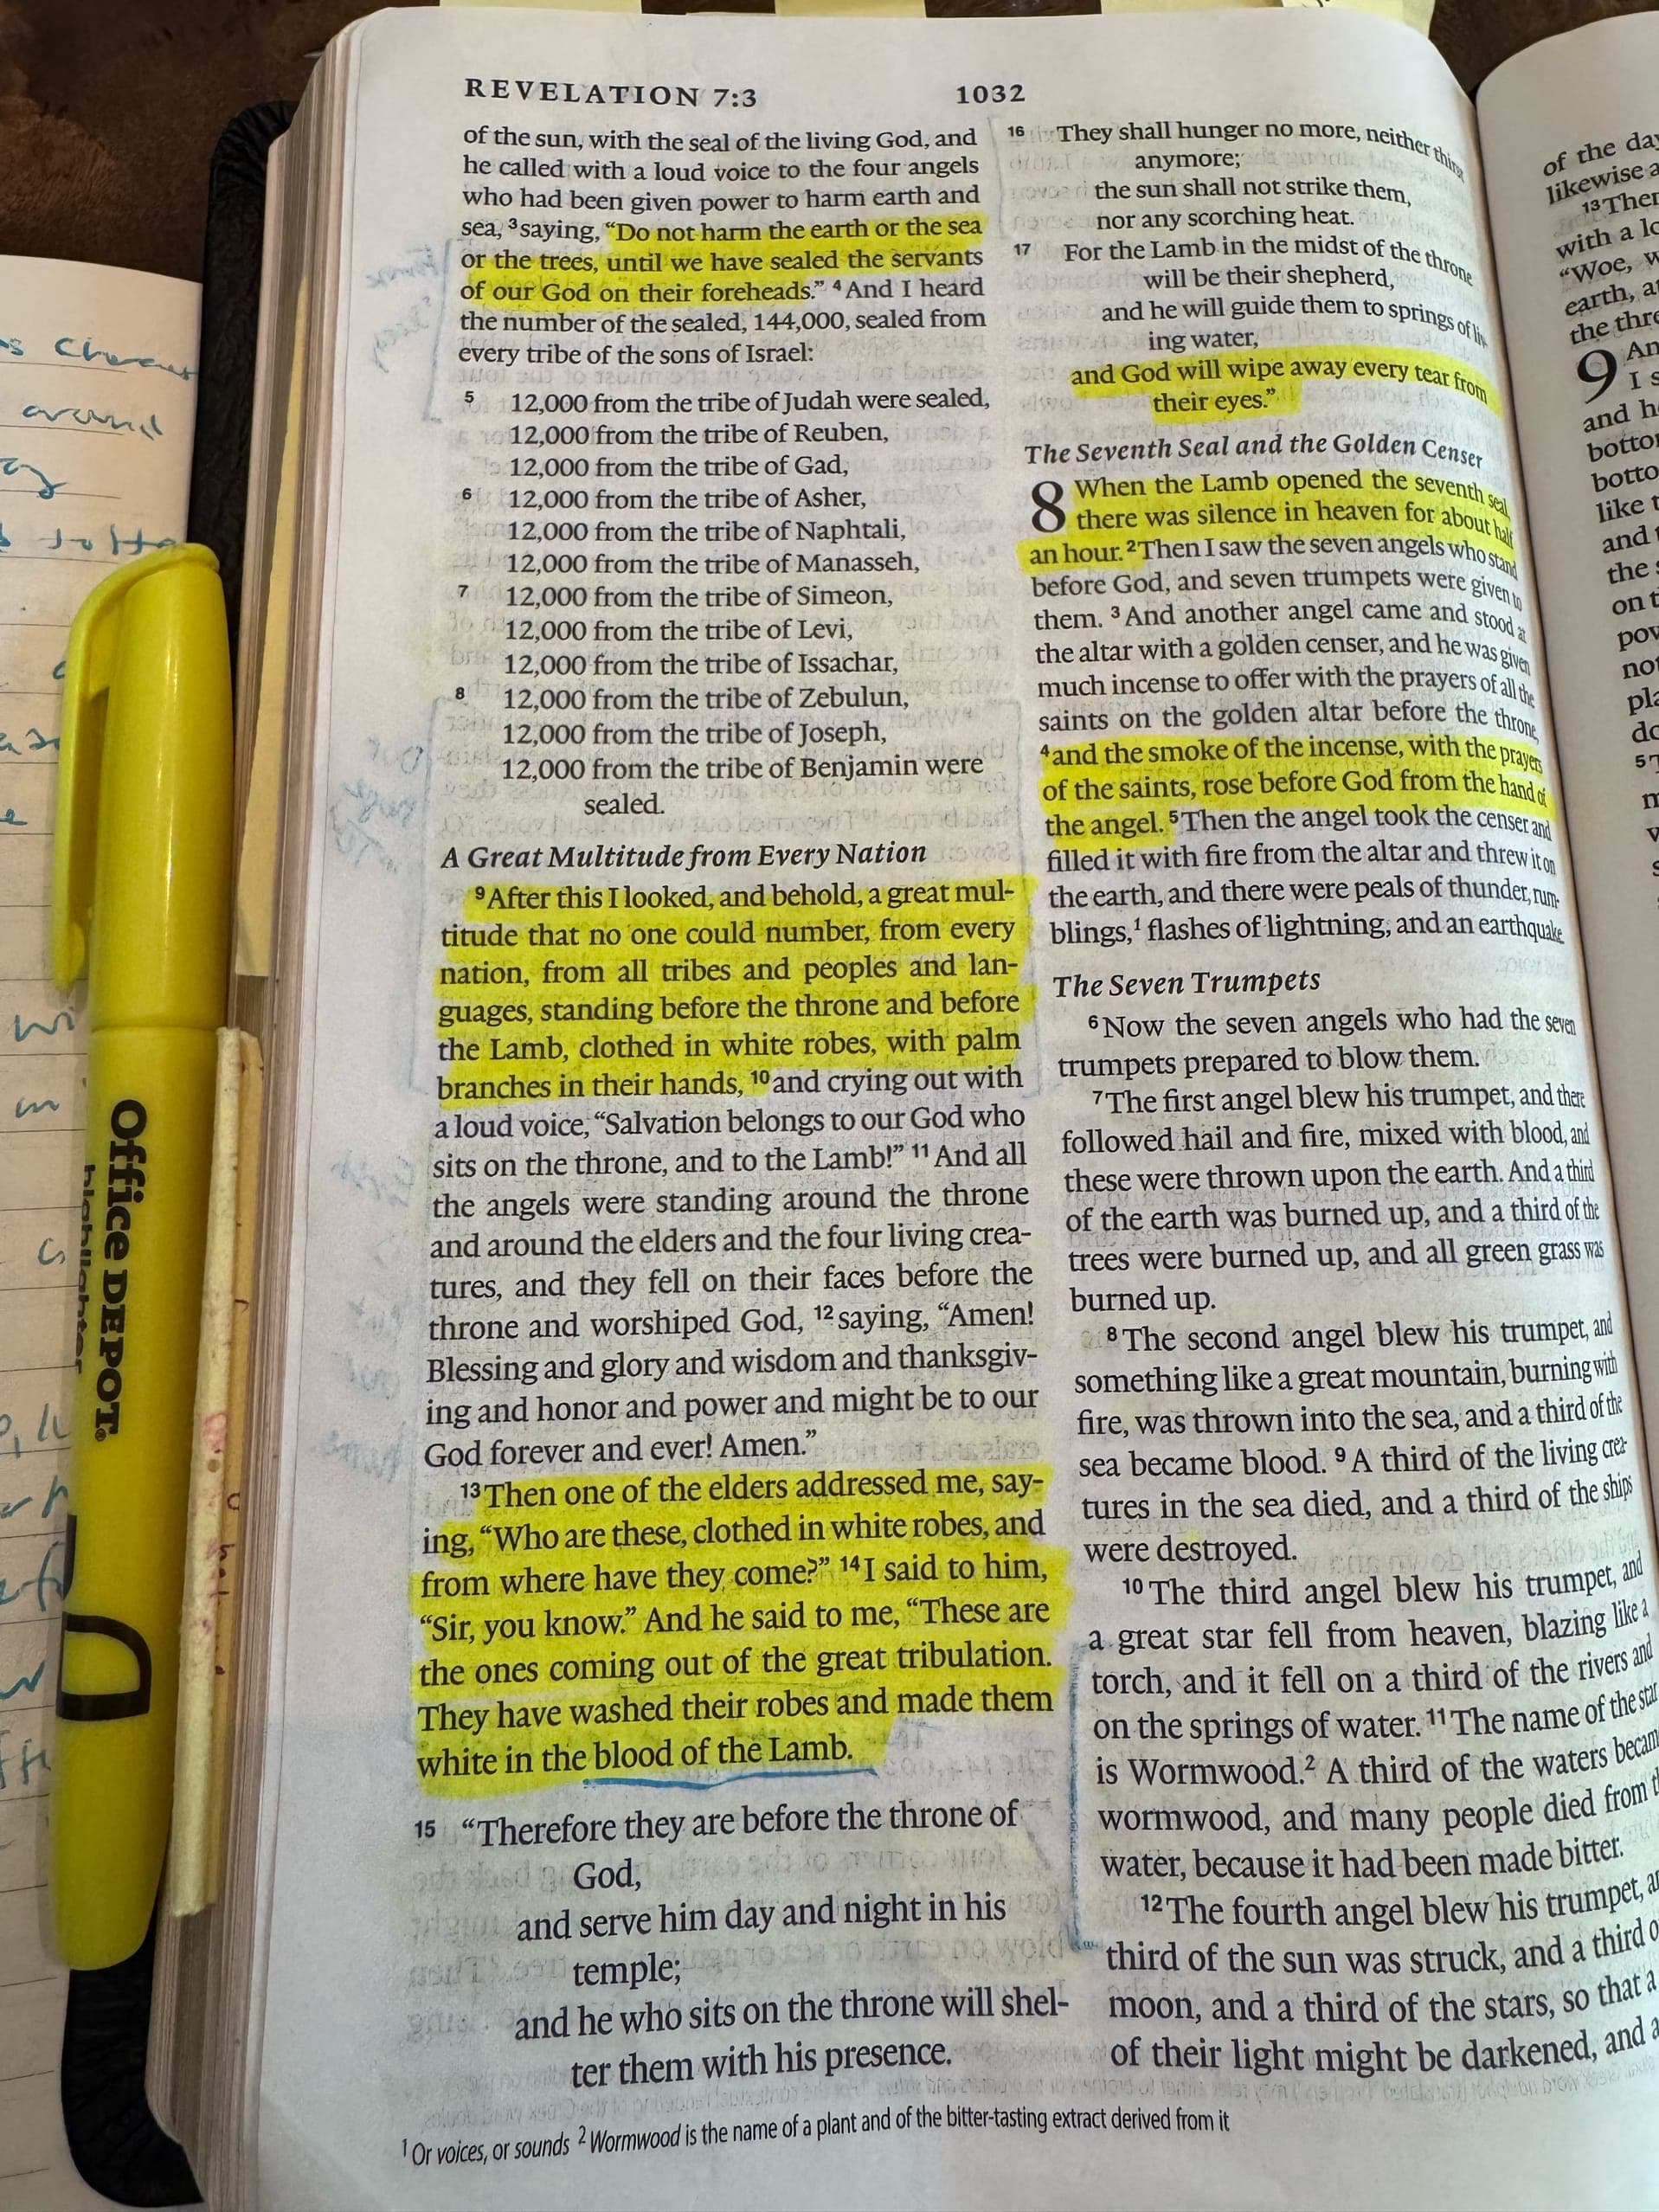 REVELATION 7:3
1032
of the sun, with the seal of the living God, and
he called with a loud voice to the four angels
who had been given power to harm earth and
sea, 3 saying, “Do not harm the earth or the sea
or the trees, until we have sealed the servants
of our God on their foreheads.” 4 And I heard
the number of the sealed, 144,000, sealed from
every tribe of the sons of Israel:
5 12,000 from the tribe of Judah were sealed,
12,000 from the tribe of Reuben,
12,000 from the tribe of Gad,
6 12,000 from the tribe of Asher,
12,000 from the tribe of Naphtali,
12,000 from the tribe of Manasseh,
7 12,000 from the tribe of Simeon,
12,000 from the tribe of Levi,
12,000 from the tribe of Issachar,
8 12,000 from the tribe of Zebulun,
12,000 from the tribe of Joseph,
12,000 from the tribe of Benjamin were
sealed.
A Great Multitude from Every Nation
9 After this I looked, and behold, a great mul-
titude that no one could number, from every
nation, from all tribes and peoples and lan-
guages, standing before the throne and before
the Lamb, clothed in white robes, with palm
branches in their hands, 10 and crying out with
a loud voice, “Salvation belongs to our God who
sits on the throne, and to the Lamb!” 11 And all
the angels were standing around the throne
and around the elders and the four living crea-
tures, and they fell on their faces before the
throne and worshiped God, 12 saying, “Amen!
Blessing and glory and wisdom and thanksgiv-
ing and honor and power and might be to our
God forever and ever! Amen.”
13 Then one of the elders addressed me, say-
ing, “Who are these, clothed in white robes, and
from where have they come?” 14 I said to him,
“Sir, you know.” And he said to me, “These are
the ones coming out of the great tribulation.
They have washed their robes and made them
white in the blood of the Lamb.
15 “Therefore they are before the throne of
God,
and serve him day and night in his
temple;
and he who sits on the throne will shel-
ter them with his presence.
16 They shall hunger no more, neither thirst
anymore;
the sun shall not strike them,
nor any scorching heat.
17 For the Lamb in the midst of the throne
will be their shepherd,
and he will guide them to springs of liv-
ing water,
and God will wipe away every tear from
their eyes.”
The Seventh Seal and the Golden Censer
8 When the Lamb opened the seventh seal,
there was silence in heaven for about half
an hour. 2 Then I saw the seven angels who stand
before God, and seven trumpets were given to
them. 3 And another angel came and stood at
the altar with a golden censer, and he was given
much incense to offer with the prayers of all the
saints on the golden altar before the throne,
4 and the smoke of the incense, with the prayers
of the saints, rose before God from the hand of
the angel. 5 Then the angel took the censer and
filled it with fire from the altar and threw it on
the earth, and there were peals of thunder, rum-
blings,1 flashes of lightning, and an earthquake.
The Seven Trumpets
6 Now the seven angels who had the seven
trumpets prepared to blow them.
7 The first angel blew his trumpet, and there
followed hail and fire, mixed with blood, and
these were thrown upon the earth. And a third
of the earth was burned up, and a third of the
trees were burned up, and all green grass was
burned up.
8 The second angel blew his trumpet, and
something like a great mountain, burning with
fire, was thrown into the sea, and a third of the
sea became blood. 9 A third of the living crea-
tures in the sea died, and a third of the ships
were destroyed.
10 The third angel blew his trumpet, and
a great star fell from heaven, blazing like a
torch, and it fell on a third of the rivers and
on the springs of water. 11 The name of the star
is Wormwood.2 A third of the waters became
wormwood, and many people died from the
water, because it had been made bitter.
12 The fourth angel blew his trumpet, and
third of the sun was struck, and a third of
moon, and a third of the stars, so that a
of their light might be darkened, and a
1 Or voices, or sounds 2 Wormwood is the name of a plant and of the bitter-tasting extract derived from it
of the day
likewise a
13 Then
with a lo
“Woe, w
earth, at
the thre
9 An
I s
and h
bottom
botto
like t
and t
the s
on t
pow
not
pla
do
Office DEPOT®
highlighter
around